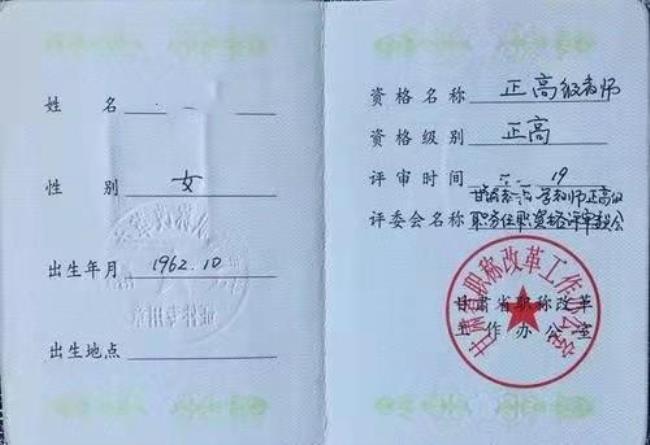 姓 名
性 别 女
出生年月 1962.10
出生地点
证件专用章
资格名称 正高级教师
资格级别 正高
评审时间 19
评委会名称 职务任职资格评审委员会
甘肃省职称改革工作办公室
甘肃省职称改革
工作办公室